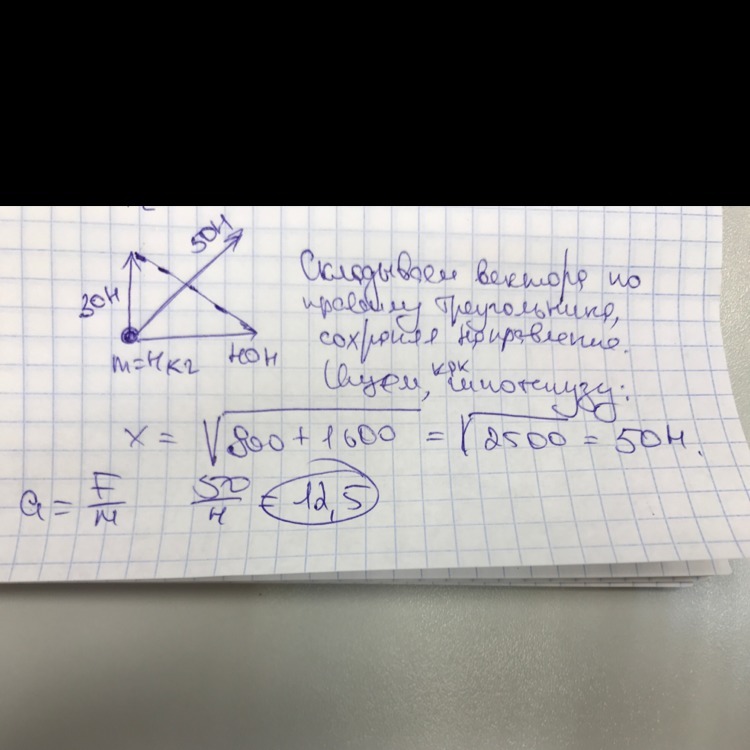 50Н
30Н
m=4кг
40Н
Складываем вектора по
правилу треугольника,
сохраняя направление.
Ищем, как гипотенузу:
x = √900 + 1600 = √2500 = 50Н.
a = F/m 50/4 = 12,5